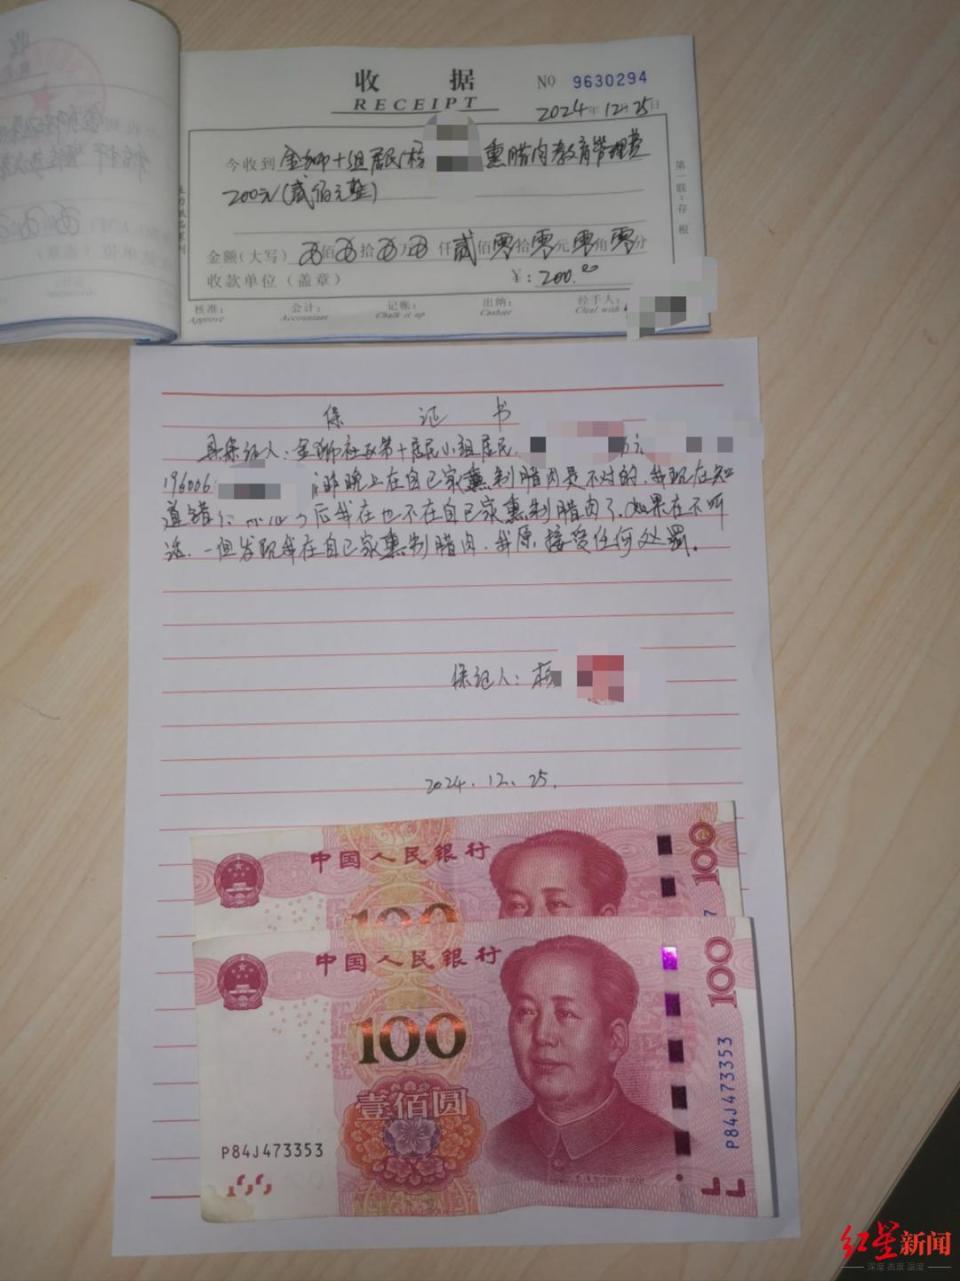 收 据
RECEIPT
NO 9630294
2024年12月25日
今收到 金狮十组居民杨 熏腊肉教育管理费
200元(贰佰元整)
金额(大写) 佰 拾 万 仟 贰 佰 零 拾 零 元 零 角 零 分
收款单位(盖章) ¥: 200.00
核准: 会计: 记帐: 出纳: 经手人:
Approve Accountant Chalk it up Cashier Cleal with
第一联:存根
保 证 书
具保证人:金狮社区第十居民小组居民
196006 昨晚上在自己家熏制腊肉是不对的,我现在知
道错 后我在也不在自己家熏制腊肉了,如果在不听
话,一但发现我在自己家熏制腊肉,我原接受任何处罚。
保证人:杨
2024.12.25.
中国人民银行
100
100
中国人民银行
100
100
壹佰圆
P84J473353
P84J473353
红星新闻
深度 态度 温度